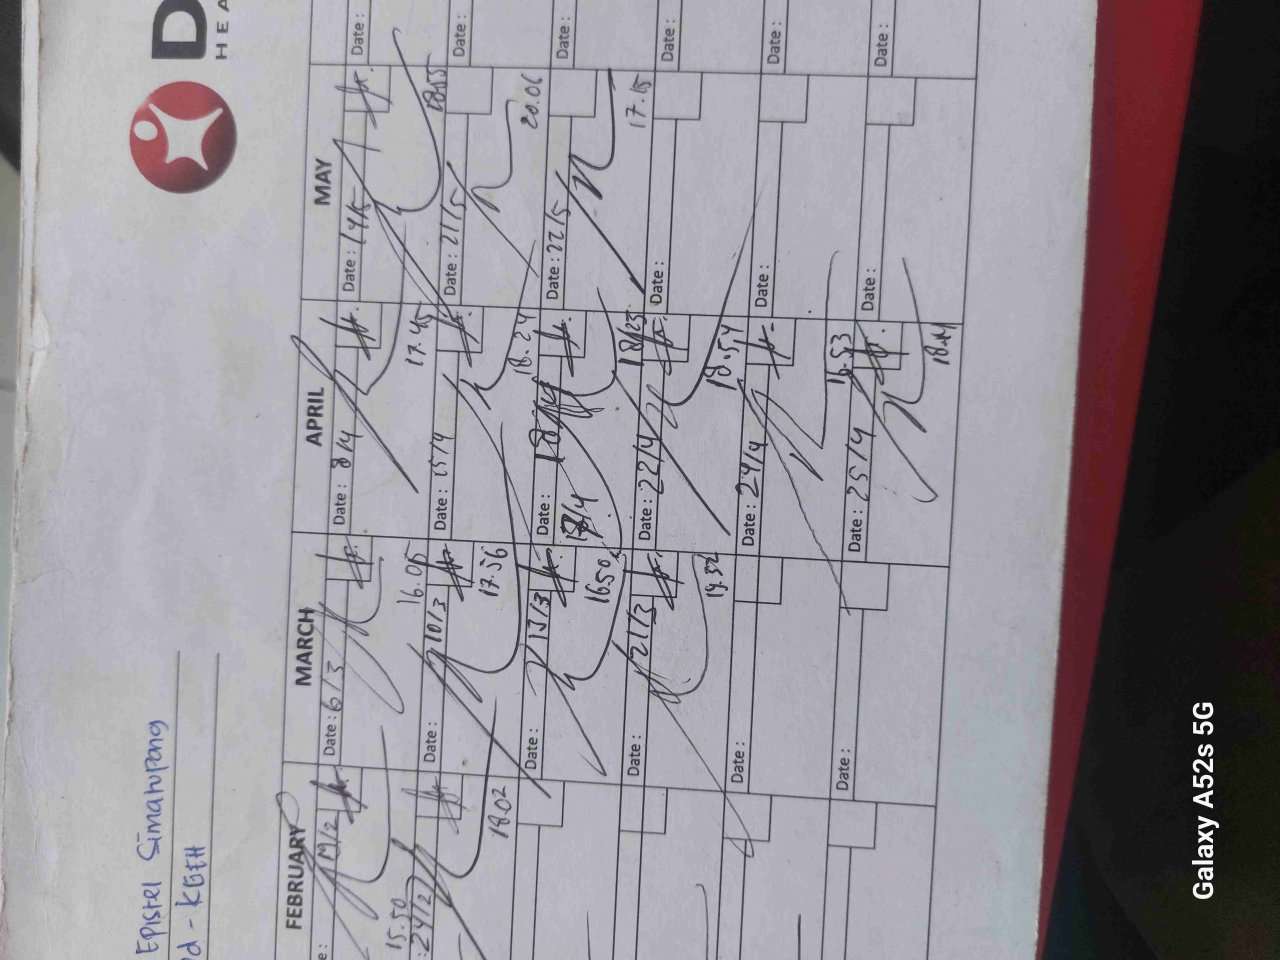 D
HEA
Epistel Simanupang
Pd - KGEH
FEBRUARY
MARCH
APRIL
MAY
Date: 6/3
Date: 8/4
Date: 14/5
Date:
15.50
16.05
17.45
18.55
: 24/2
Date: 10/3
Date: 15/4
Date: 21/5
Date:
18.02
17.56
18.24
20.06
Date: 13/3
Date: 18/4
18/4
Date: 22/5
Date:
16.50
18/25
17.15
Date: 21/3
Date: 22/4
Date:
Date:
19.52
18.54
Date:
Date: 24/4
Date:
Date:
16.53
Date:
Date: 25/4
Date:
Date:
18.41
Galaxy A52s 5G